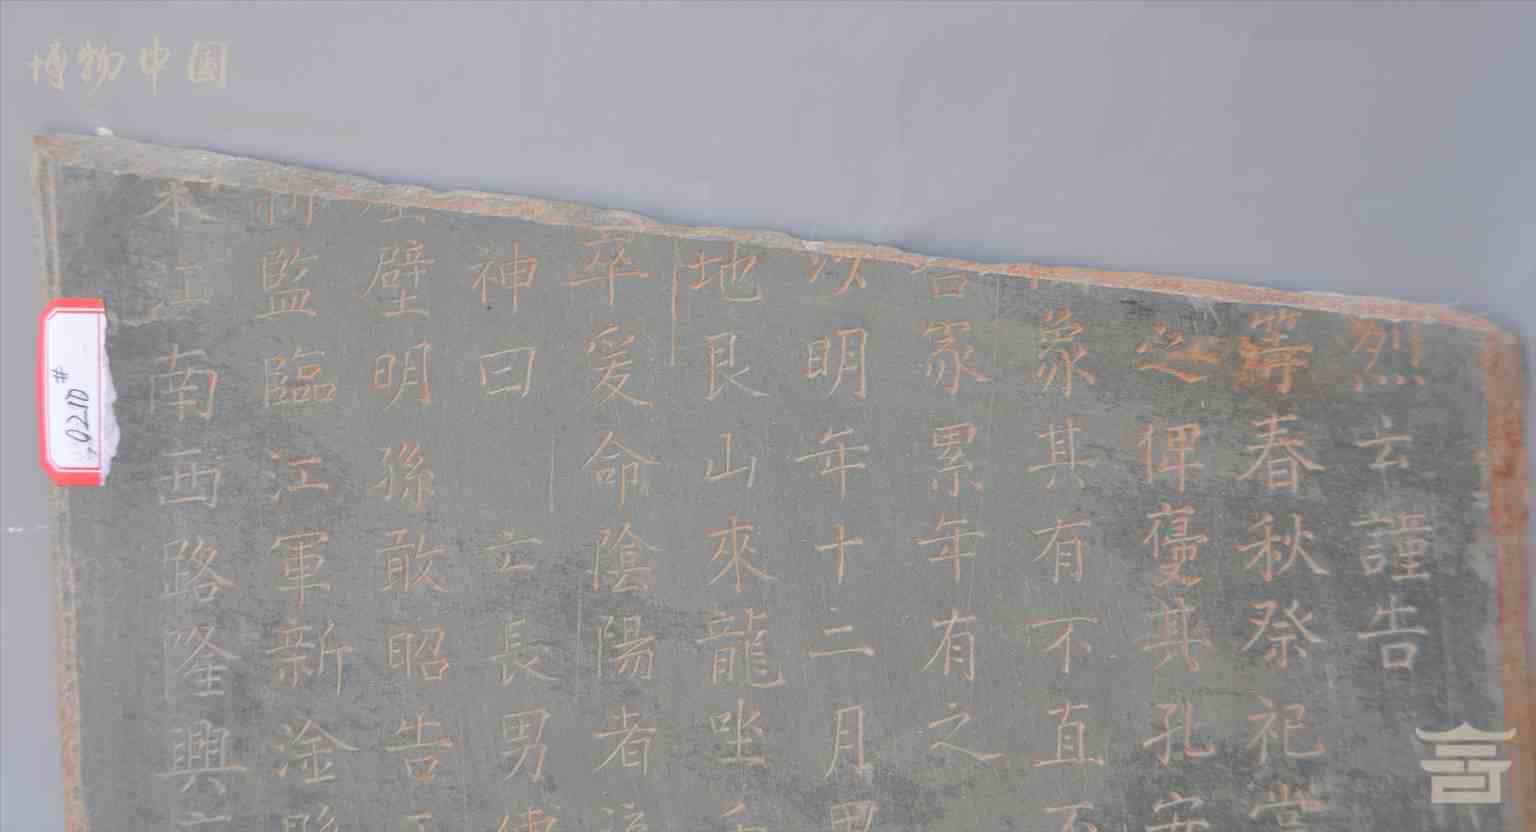 博物中国
江南西路隆興
監臨江軍新淦縣
壁明孫敢昭告
神曰亡長男
卒爰命陰陽者流
地艮山來龍坐
以明年十二月
冢累年有之
象其有不直不
之俾蔓其孔安
等春秋祭祀
烈云謹告
0210#